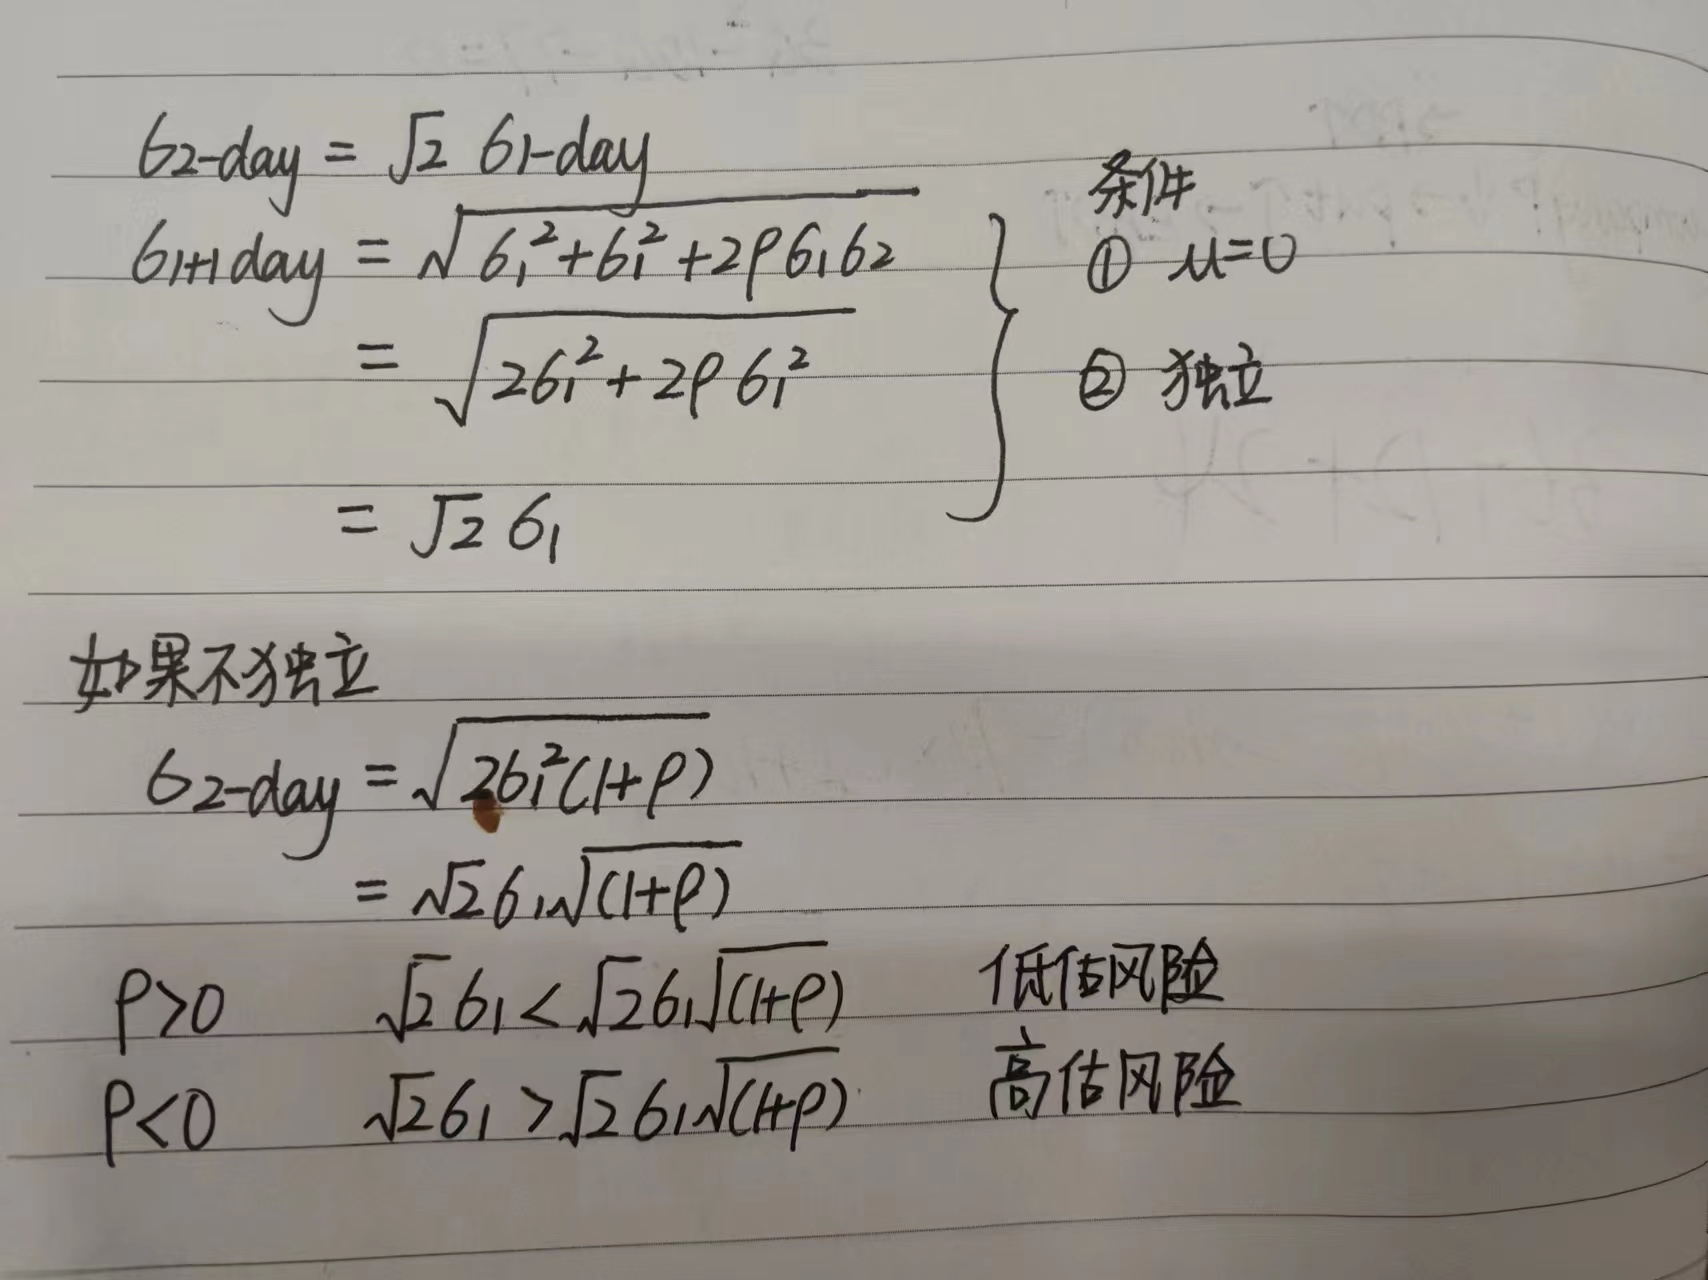 σ2-day = √2 σ1-day
条件
σ1+1day = √(σ1² + σ1² + 2ρσ1σ2)
① μ=0
= √(2σ1² + 2ρσ1²)
② 独立
= √2 σ1
如果不独立
σ2-day = √(2σ1²(1+ρ))
= √2 σ1 √(1+ρ)
ρ>0 √2 σ1 < √2 σ1 √(1+ρ) 低估风险
ρ<0 √2 σ1 > √2 σ1 √(1+ρ) 高估风险